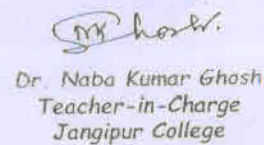 Dr. Naba Kumar Ghosh
Teacher-in-Charge
Jangipur College